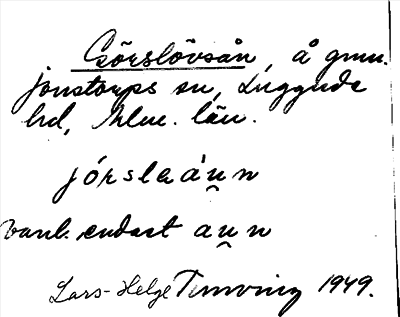 Görslövsån, å gnm.
jonstorps sn, Luggude
hd, Mlm. län.
jórslaáu̯n
Vanl. endast au̯n
Lars-Helge Tunving 1949.